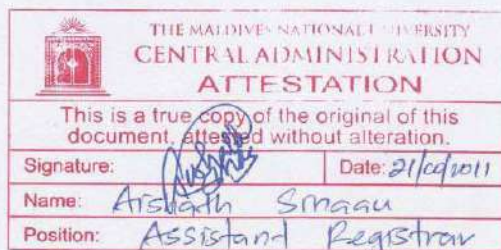 THE MALDIVES NATIONAL UNIVERSITY
CENTRAL ADMINISTRATION
ATTESTATION
This is a true copy of the original of this
document, attested without alteration.
Signature:
Date: 21/ /2011
Name: Aishath
Position: Assistant Registrar